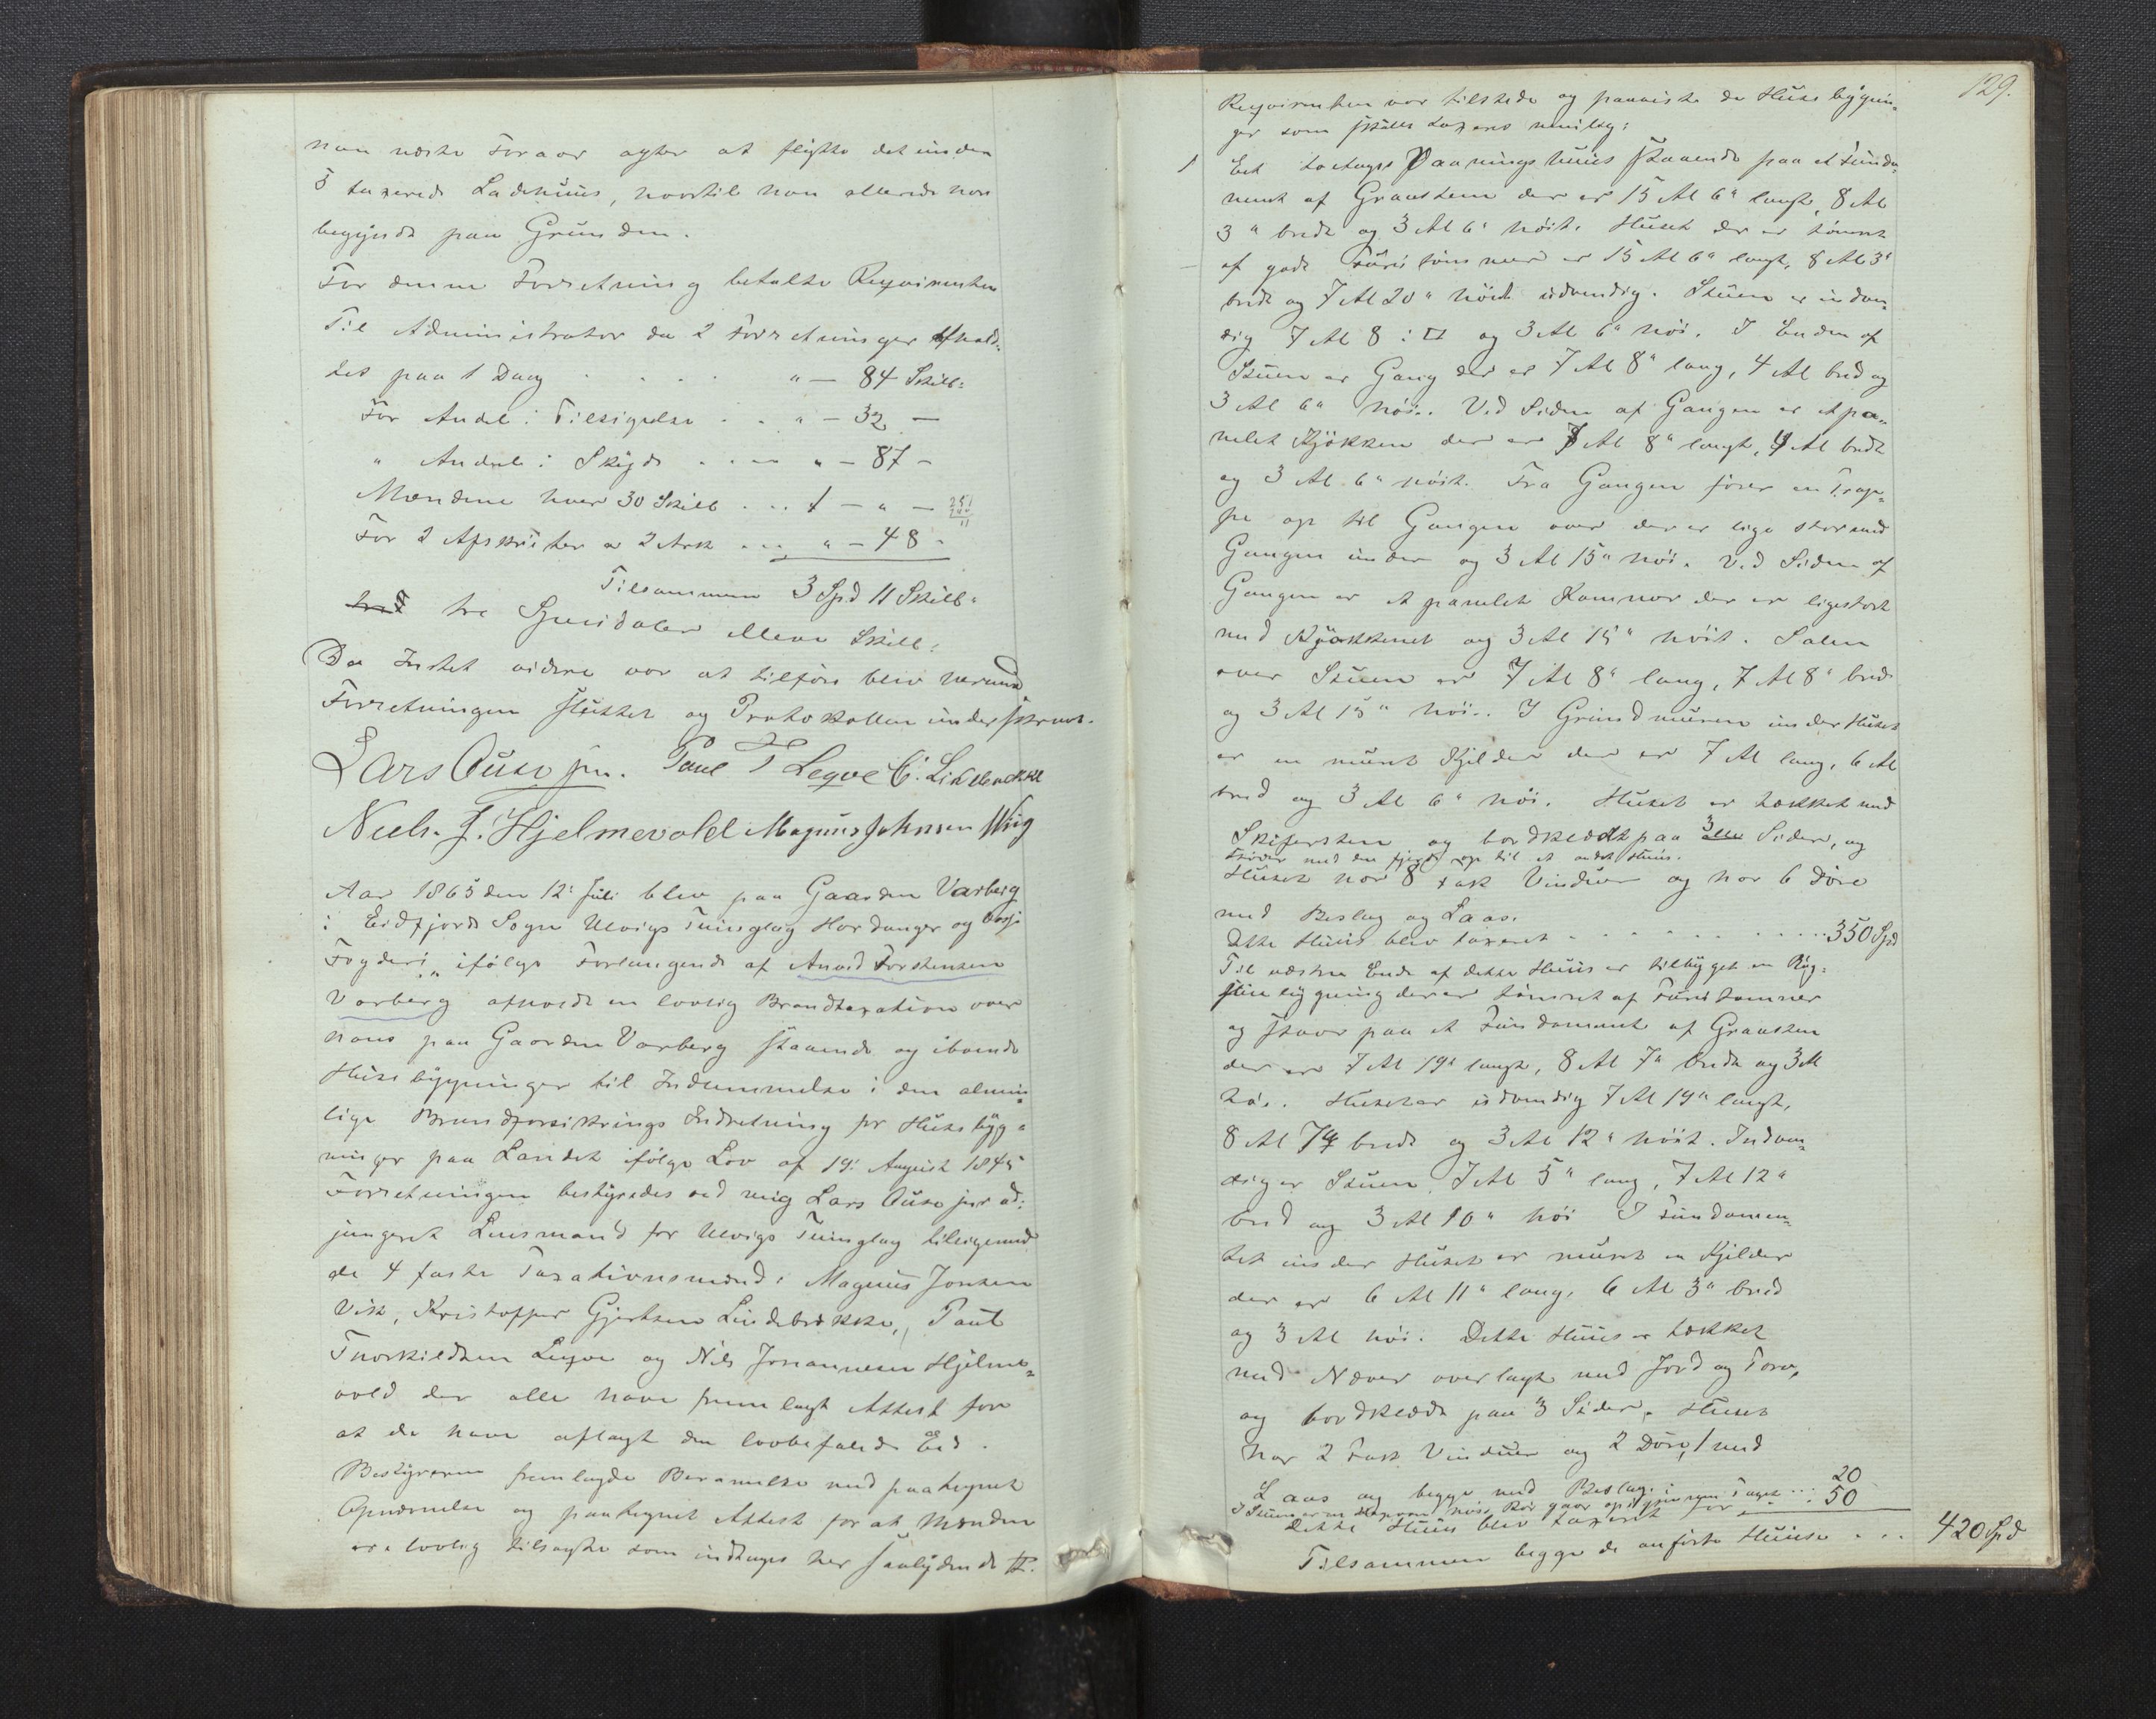 han næste Foraar agter at flytte det under
5 taxerede Ladehuus, hvortil han allerede har
begyndt paa Grunden.
For denne Forretning betalte Reqvirenten
Til Administrator da 2 Forretninger afhold=
tes paa 1 Dag . . . . " — 84 Skill:
For Andel i Tilsigelse . . " — 32 —
" Andeel i Skyds . . . . " — 87 —
Mændene hver 30 Skill . . . 1 — " —
For 2 Afskrifter a 2 Ark . . . " — 48 -
Tilsammen 3 Spd 11 Skill:
tre Speciedaler elleve Skill:
Da Intet videre var at tilføre blev denne
Forretningen sluttet og Protokollen underskrevet.
Lars Øuse jun. Paul T Leqve C. Lindebrække
Niels. J. Hjelmevold Magnus Johnsen Wiig
Aar 1865 den 12: Juli blev paa Gaarden Varberg
i Eidfjords Sogn Ulvigs Tinglag Hardanger og Voss
Fogderi, ifølge Forlangende af Anved Torstensen
Varberg afholdt en lovlig Brandtaxation over
hans paa Gaarden Varberg staaende og iboende
Huusbygninger til Indlemmelse i den almin=
lige Brandforsikrings Indretning for Huusbyg=
ninger paa Landet ifølge Lov af 19: August 1845
Forretningen bestyredes ved mig Lars Øuse jun ad=
jungeret Lensmand for Ulvigs Tinglag tilligemed
de 4 faste Taxationsmænd: Magnus Jonsen
Vik, Kristoffer Gjertsen Lindebrække, Paul
Thorkildsen Leqve og Nils Johannesen Hjelme=
vold der alle have fremlagt Attest for
at de have aflagt den lovbefalede Eed.
Bestyreren fremlagde Berammelse med paategnet
Opnævnelse og paategnet Attest for at Mændene
ere lovlig tilsagte som indtages her saalydende
129.
Reqvirenten var tilstede og paaviste de Huusbygnin=
ger som skulle taxeres nemlig:
1 Et toetages Vaaningshuus staaende paa et Funda=
ment af Graasten der er 15 Al 6" langt, 8 Al
3" bredt og 3 Al 6" høit. Huset der er tømret
af godt Furutømmer er 15 Al 6" langt, 8 Al 3"
bredt og 7 Al 20" høit udvendig. Stuen er indven=
dig 7 Al 8 i □ og 3 Al 6" høi. I Enden af
Stuen er Gang der er 7 Al 8" lang, 4 Al bred og
3 Al 6" høi. Ved Siden af Gangen er et pa=
nelet Kjøkken der er 7 Al 8" langt, 4 Al bredt
og 3 Al 6" høit. Fra Gangen fører en Trap=
pe op til Gangen over der er lige stor med
Gangen under og 3 Al 15" høi. Ved Siden af
Gangen er et panelet Kammer der er ligestort
med Kjøkkenet og 3 Al 15" høit. Salen
over Stuen er 7 Al 8" lang, 7 Al 8" bred
og 3 Al 15" høi. I Grundmuren under Huset
er en muret Kjelder der er 7 Al lang, 6 Al
bred og 3 Al 6" høi. Huset er tækket med
Skifersten og bordklædt paa 3 alle Sider, og
støder med den fjerde op til et andet Huus.
Huset har 8 Fag Vinduer og har 6 Døre
med Beslag og Laas.
Dette Huus blev taxeret . . . . . . . . 350 Spd
Til vestre Ende af dette Huus er tilbygget en Røg=
stuebygning der er tømret af Furutømmer
og staar paa et Fundament af Graasten
der er 7 Al 19" langt, 8 Al 7" bredt og 3 Al
høi. Huset er udvendig 7 Al 19" langt,
8 Al 7" bredt og 3 Al 12" høit. Indven=
dig er Stuen 7 Al 5" lang, 7 Al 12"
bred og 3 Al 10" høi I Fundamen=
tet under Huset er muret en Kjelder
der er 6 Al 11" lang, 6 Al 3" bred
og 3 Al høi. Dette Huus er tækket
med Næver overlagt med Jord og Torv,
og bordklædt paa 3 Sider. Huset
har 2 Fag Vinduer og 2 Døre, 1 med
Laas og begge med Beslag:
I Stuen er en Rør gaar op igjennem Taget . . . 20
Dette Huus blev taxeret for 50
Tilsammen begge de anførte Huuse . . . 420 Spd